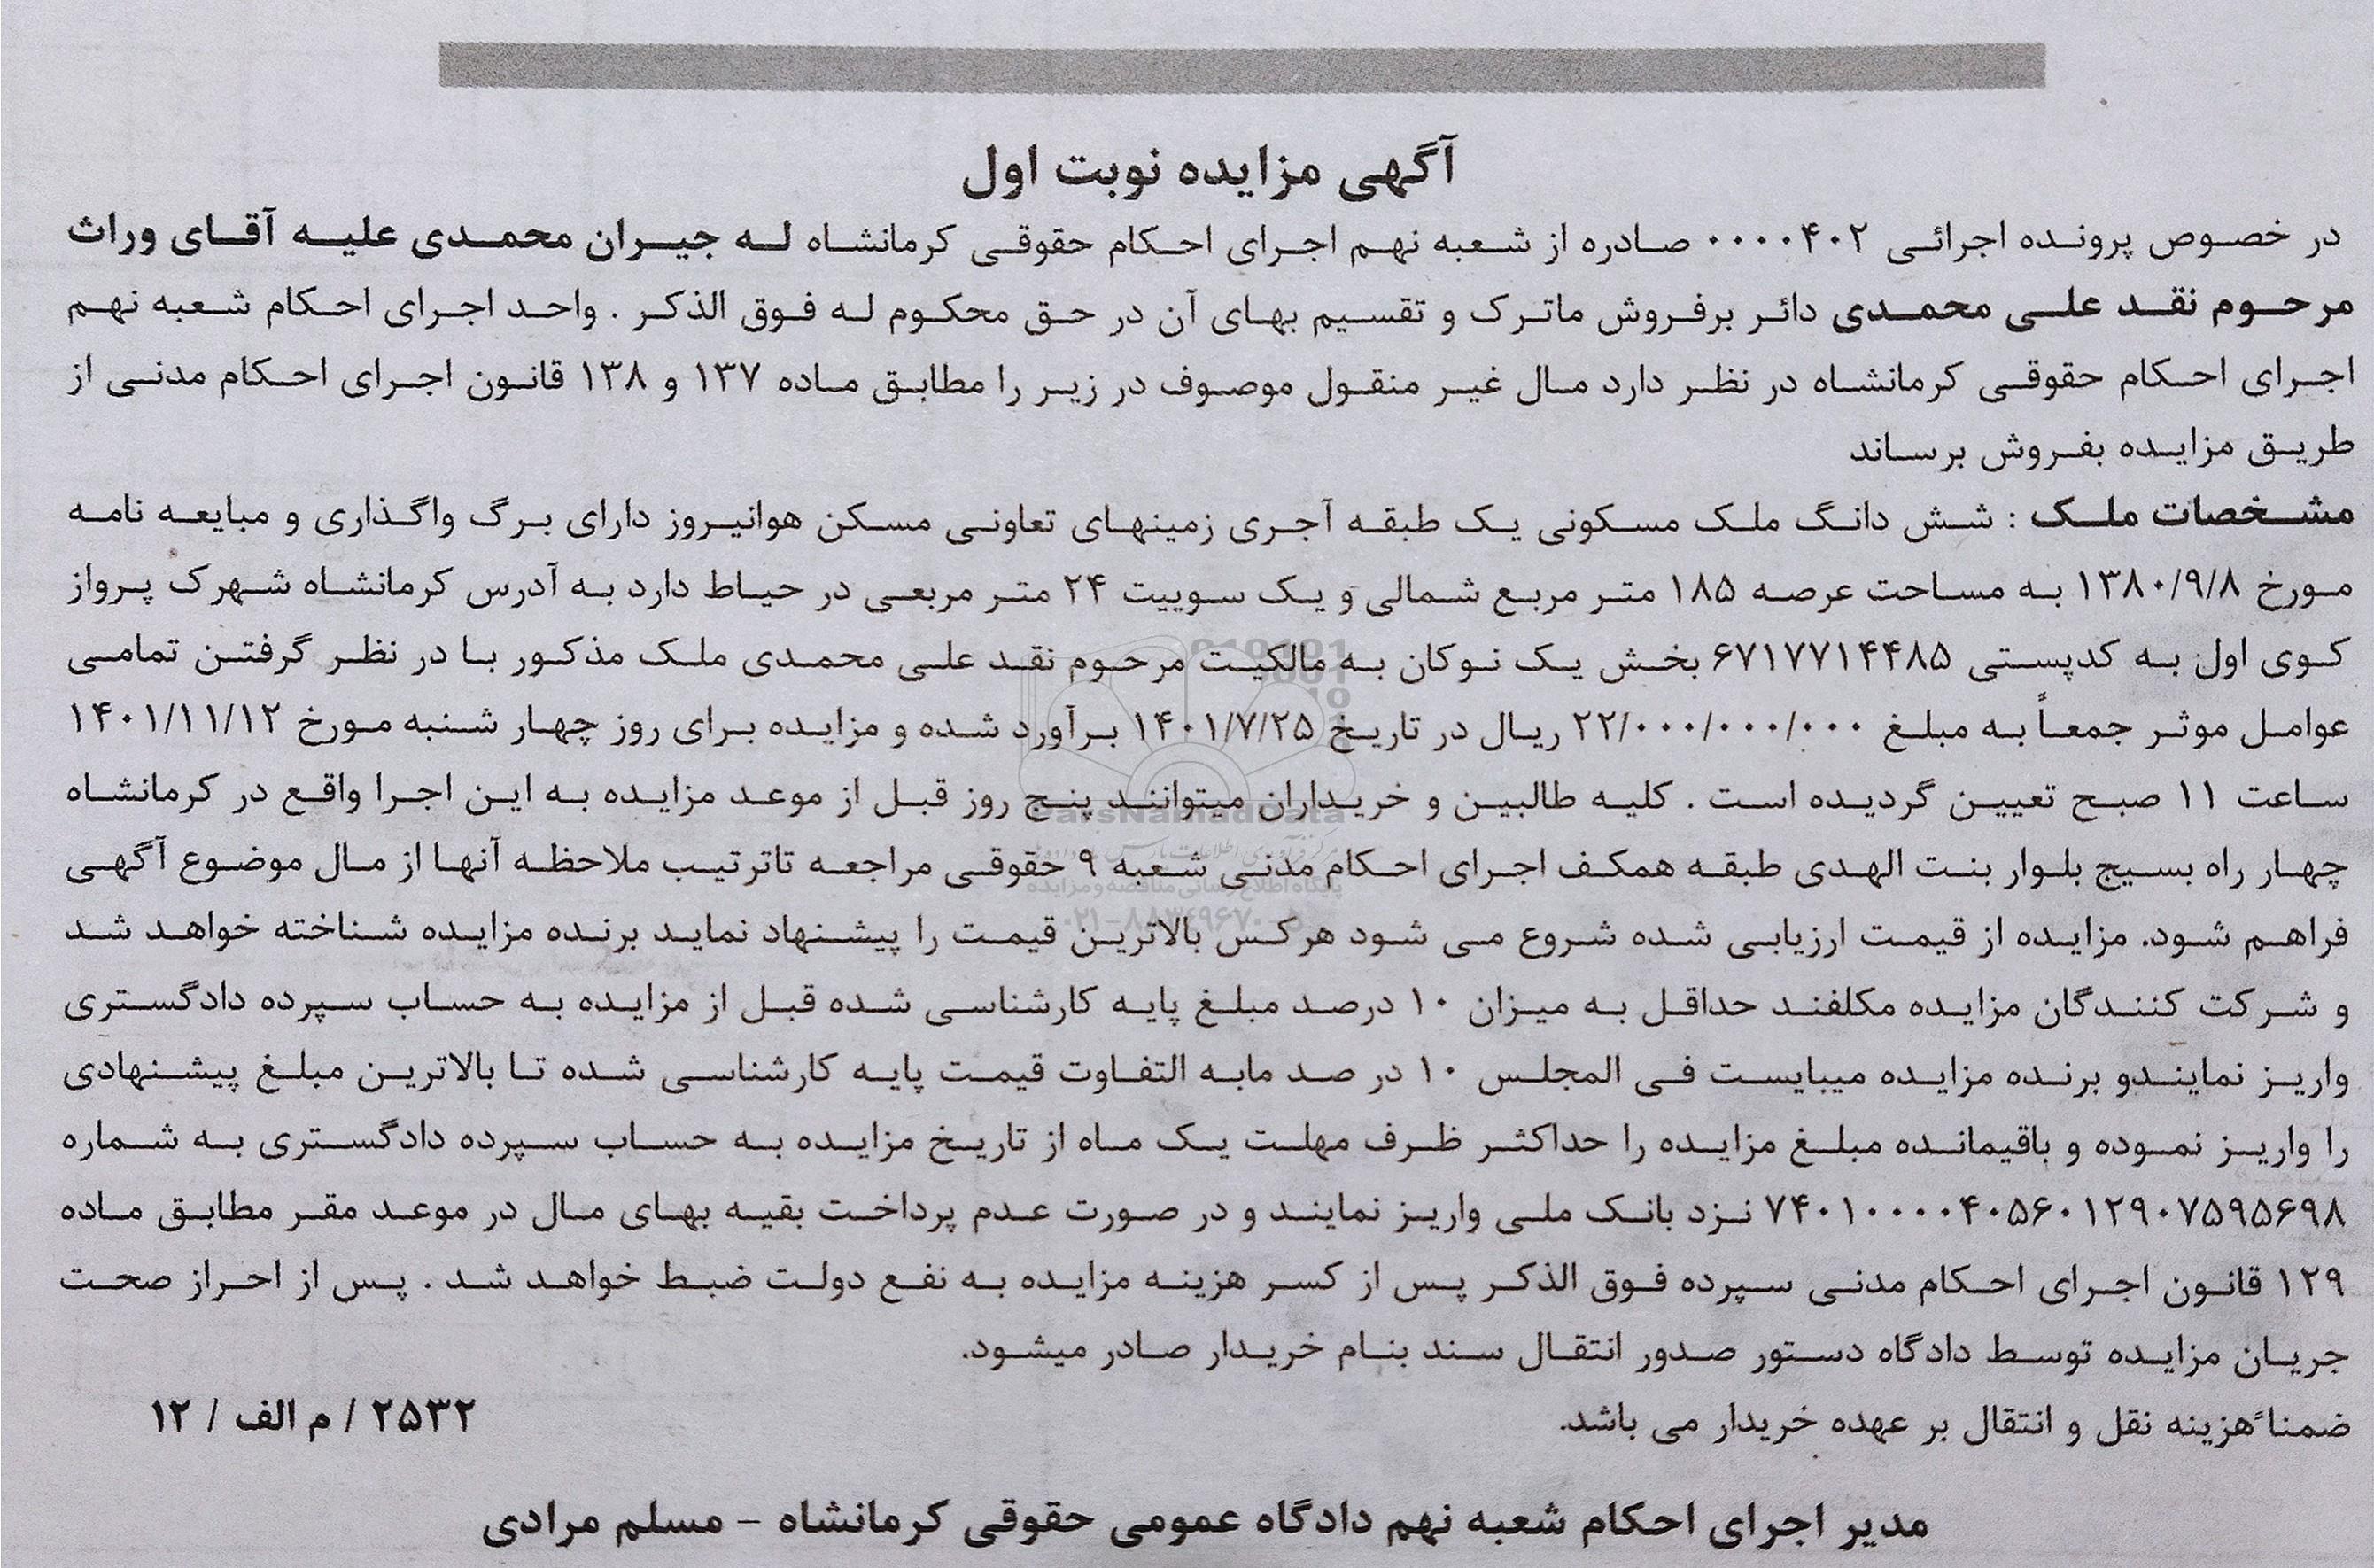 آگهی مزایده نوبت اول
در خصوص پرونده اجرائی ۰۰۰۰۴۰۲ صادره از شعبه نهم اجرای احکام حقوقی کرمانشاه له جیران محمدی علیه آقای وراث
مرحوم نقد علی محمدی دائر برفروش ماترک و تقسیم بهای آن در حق محکوم له فوق الذکر . واحد اجرای احکام شعبه نهم
اجرای احکام حقوقی کرمانشاه در نظر دارد مال غیر منقول موصوف در زیر را مطابق ماده ۱۳۷ و ۱۳۸ قانون اجرای احکام مدنی از
طریق مزایده بفروش برساند
مشخصات ملک : شش دانگ ملک مسکونی یک طبقه آجری زمینهای تعاونی مسکن هوانیروز دارای برگ واگذاری و مبایعه نامه
مورخ ۱۳۸۰/۹/۸ به مساحت عرصه ۱۸۵ متر مربع شمالی و یک سوییت ۲۴ متر مربعی در حیاط دارد به آدرس کرمانشاه شهرک پرواز
کوی اول به کدپستی ۶۷۱۷۷۱۴۴۸۵ بخش یک نوکان به مالکیت مرحوم نقد علی محمدی ملک مذکور با در نظر گرفتن تمامی
عوامل موثر جمعاً به مبلغ ۲۲/۰۰۰/۰۰۰/۰۰۰ ریال در تاریخ ۱۴۰۱/۷/۲۵ برآورد شده و مزایده برای روز چهار شنبه مورخ ۱۴۰۱/۱۱/۱۲
ساعت ۱۱ صبح تعیین گردیده است . کلیه طالبین و خریداران میتوانند پنج روز قبل از موعد مزایده به این اجرا واقع در کرمانشاه
ParsNamadData
چهار راه بسیج بلوار بنت الهدی طبقه همکف اجرای احکام مدنی شعبه ۹ حقوقی مراجعه تاترتیب ملاحظه آنها از مال موضوع آگهی
پایگاه اطلاع رسانی مناقصه و مزایده
فراهم شود. مزایده از قیمت ارزیابی شده شروع می شود هرکس بالاترین قیمت را پیشنهاد نماید برنده مزایده شناخته خواهد شد
و شرکت کنندگان مزایده مکلفند حداقل به میزان ۱۰ درصد مبلغ پایه کارشناسی شده قبل از مزایده به حساب سپرده دادگستری
واریز نمایندو برنده مزایده میبایست فی المجلس ۱۰ در صد مابه التفاوت قیمت پایه کارشناسی شده تا بالاترین مبلغ پیشنهادی
را واریز نموده و باقیمانده مبلغ مزایده را حداکثر ظرف مهلت یک ماه از تاریخ مزایده به حساب سپرده دادگستری به شماره
۷۴۰۱۰۰۰۰۴۰۵۶۰۱۲۹۰۷۵۹۵۶۹۸ نزد بانک ملی واریز نمایند و در صورت عدم پرداخت بقیه بهای مال در موعد مقر مطابق ماده
۱۲۹ قانون اجرای احکام مدنی سپرده فوق الذکر پس از کسر هزینه مزایده به نفع دولت ضبط خواهد شد . پس از احراز صحت
جریان مزایده توسط دادگاه دستور صدور انتقال سند بنام خریدار صادر میشود.
ضمناً هزینه نقل و انتقال بر عهده خریدار می باشد.
۲۵۳۲ / م الف / ۱۲
مدیر اجرای احکام شعبه نهم دادگاه عمومی حقوقی کرمانشاه - مسلم مرادی